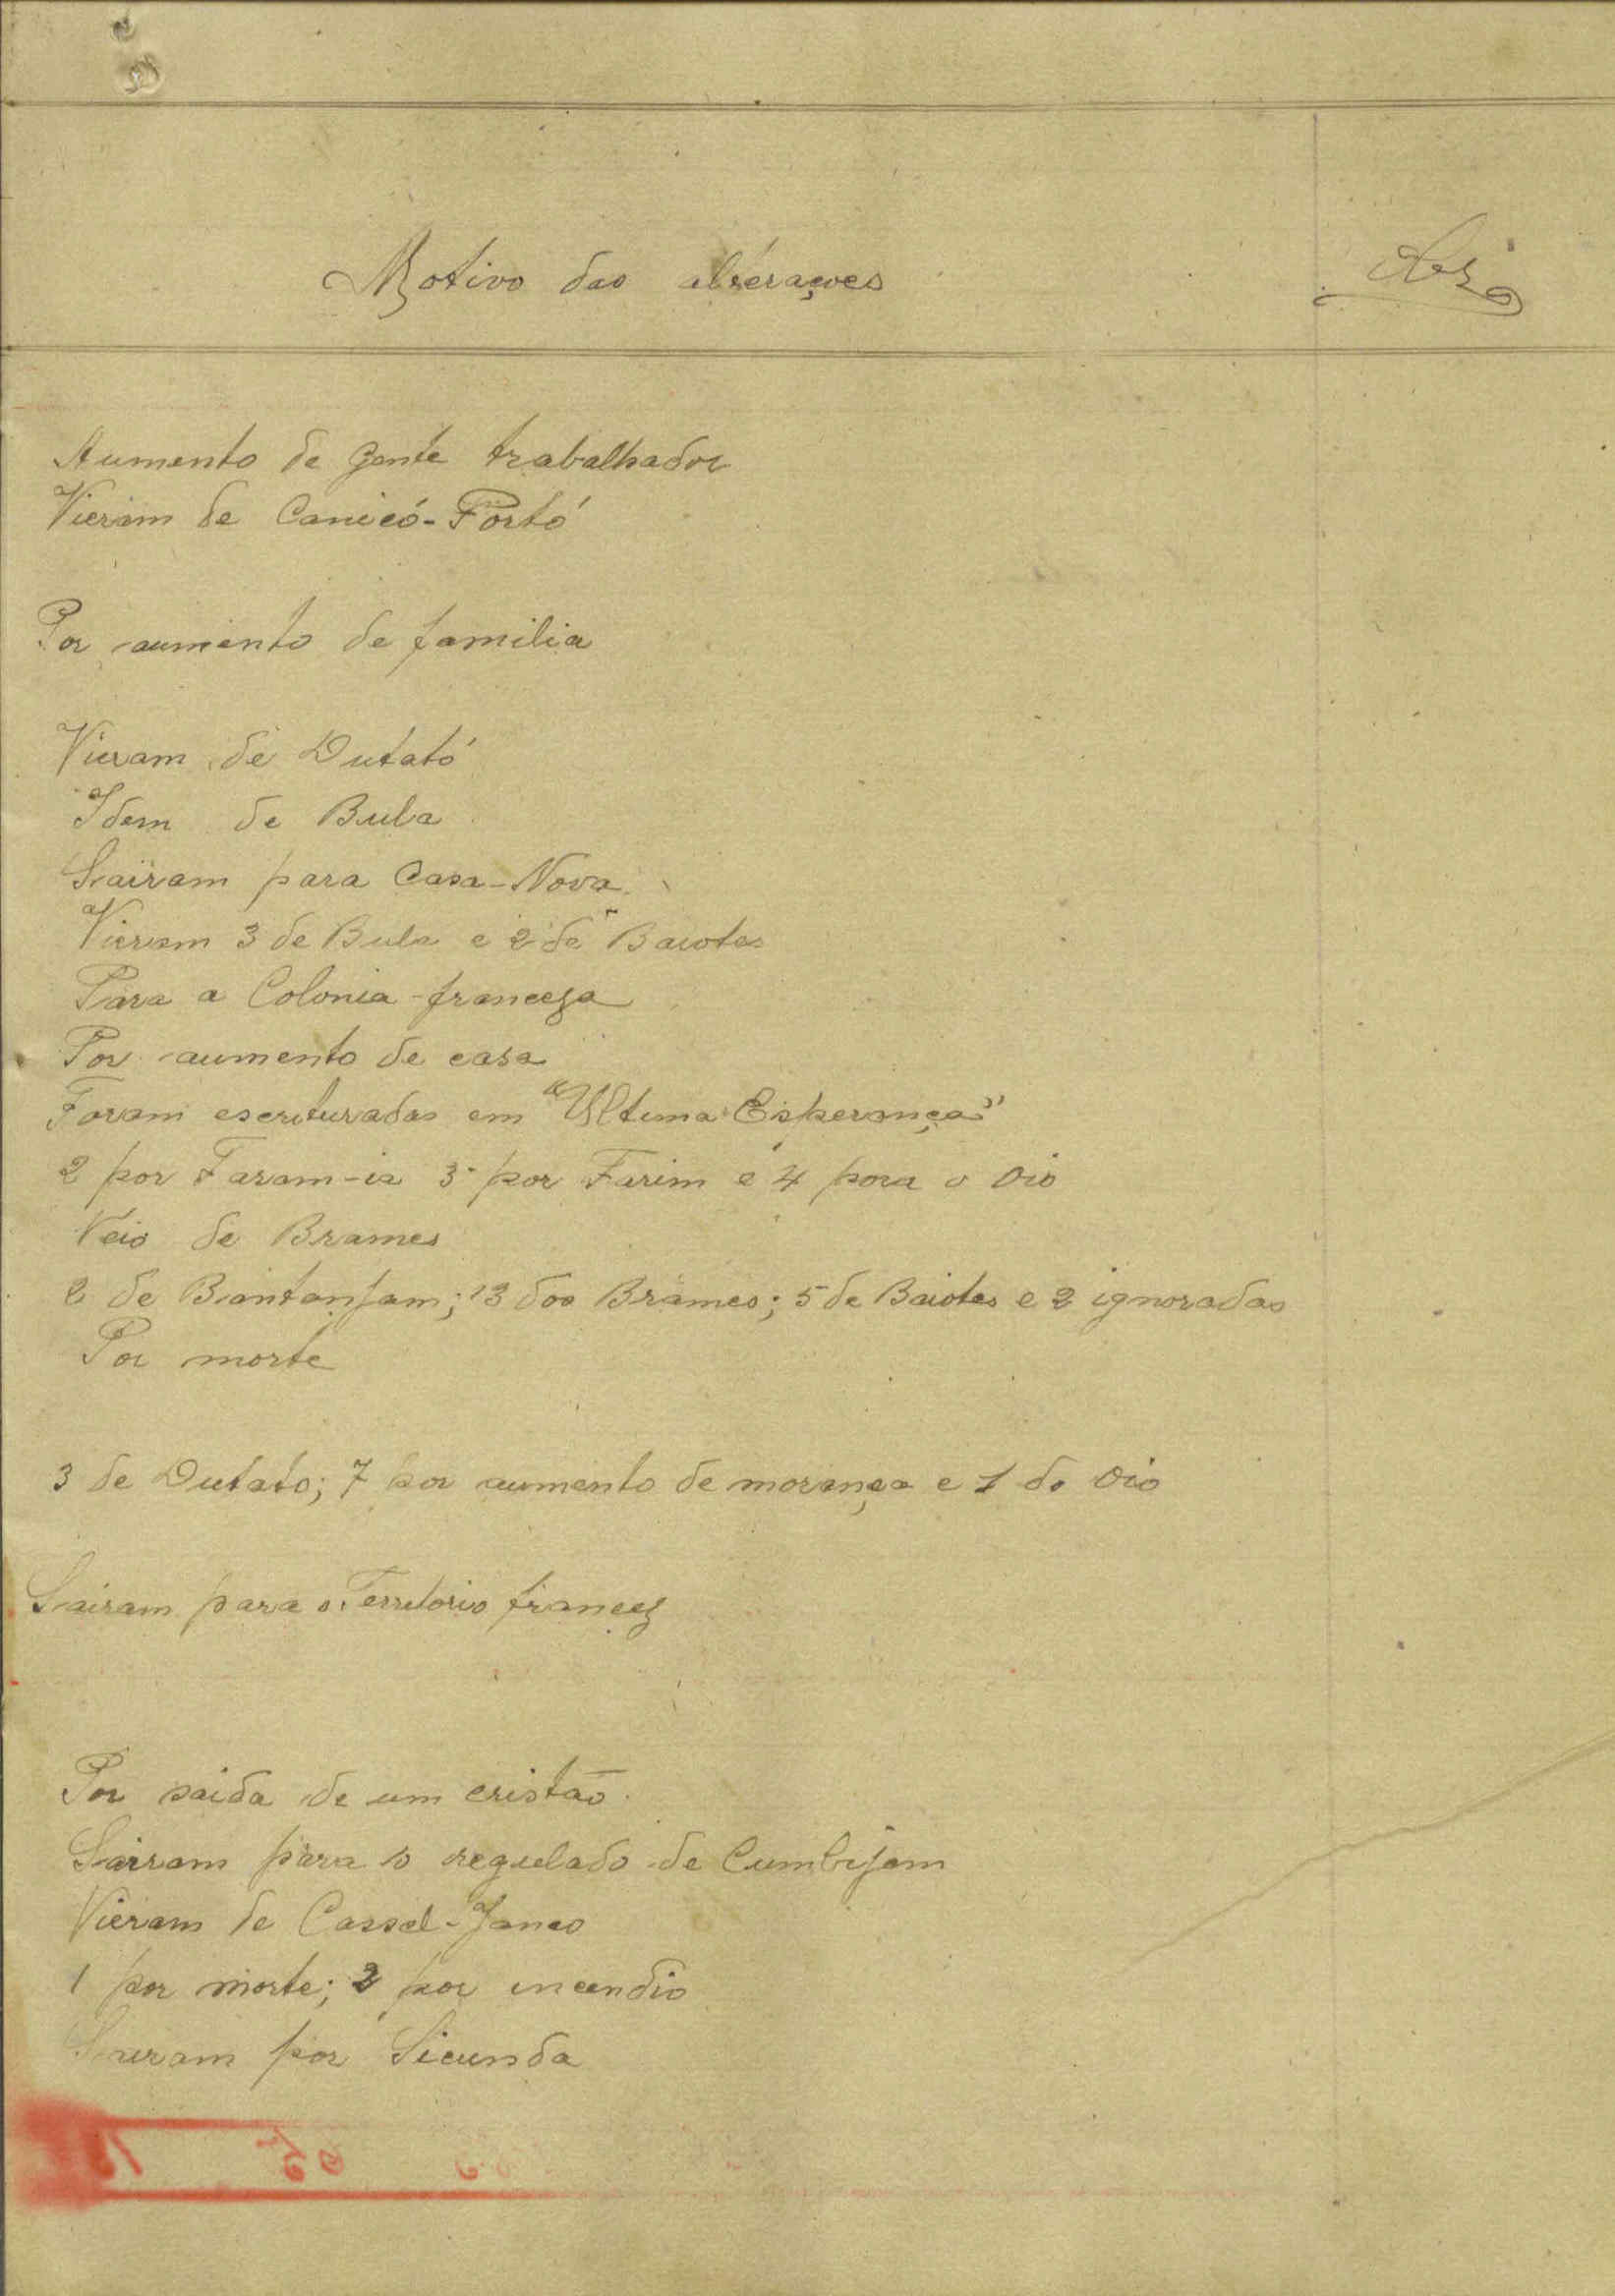 Motivo das alterações
Aumento de gente trabalhador
Vieram de Canicó-Portó
Por aumento de familia
Vieram de Dutató
Idem de Bula
Sairam para Casa-Nova
Vieram 3 de Bula e 2 de Baiotes
Para a Colonia-franceza
Por aumento de casa
Foram escrituradas em "Ultima Esperança"
2 por Faram-ia 3 por Farim e 4 para o Oio
Veio de Brames
2 de Biantanjam; 13 dos Brames; 5 de Baiotes e 2 ignoradas
Por morte
3 de Dutato; 7 por aumento de morança e 1 do Oio
Sairam para o Territorio francez
Por saida de um cristão.
Sairam para o regulado de Cumbijam
Vieram de Cassel-Janco
1 por morte; 2 por incendio
Sairam por Sicunda